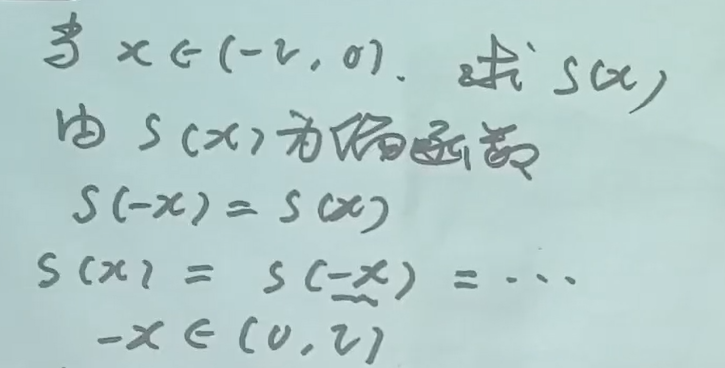 当 x∈(-2, 0). 求 S(x)
由 S(x) 为偶函数
S(-x) = S(x)
S(x) = S(-x) = ...
-x ∈ (0, 2)